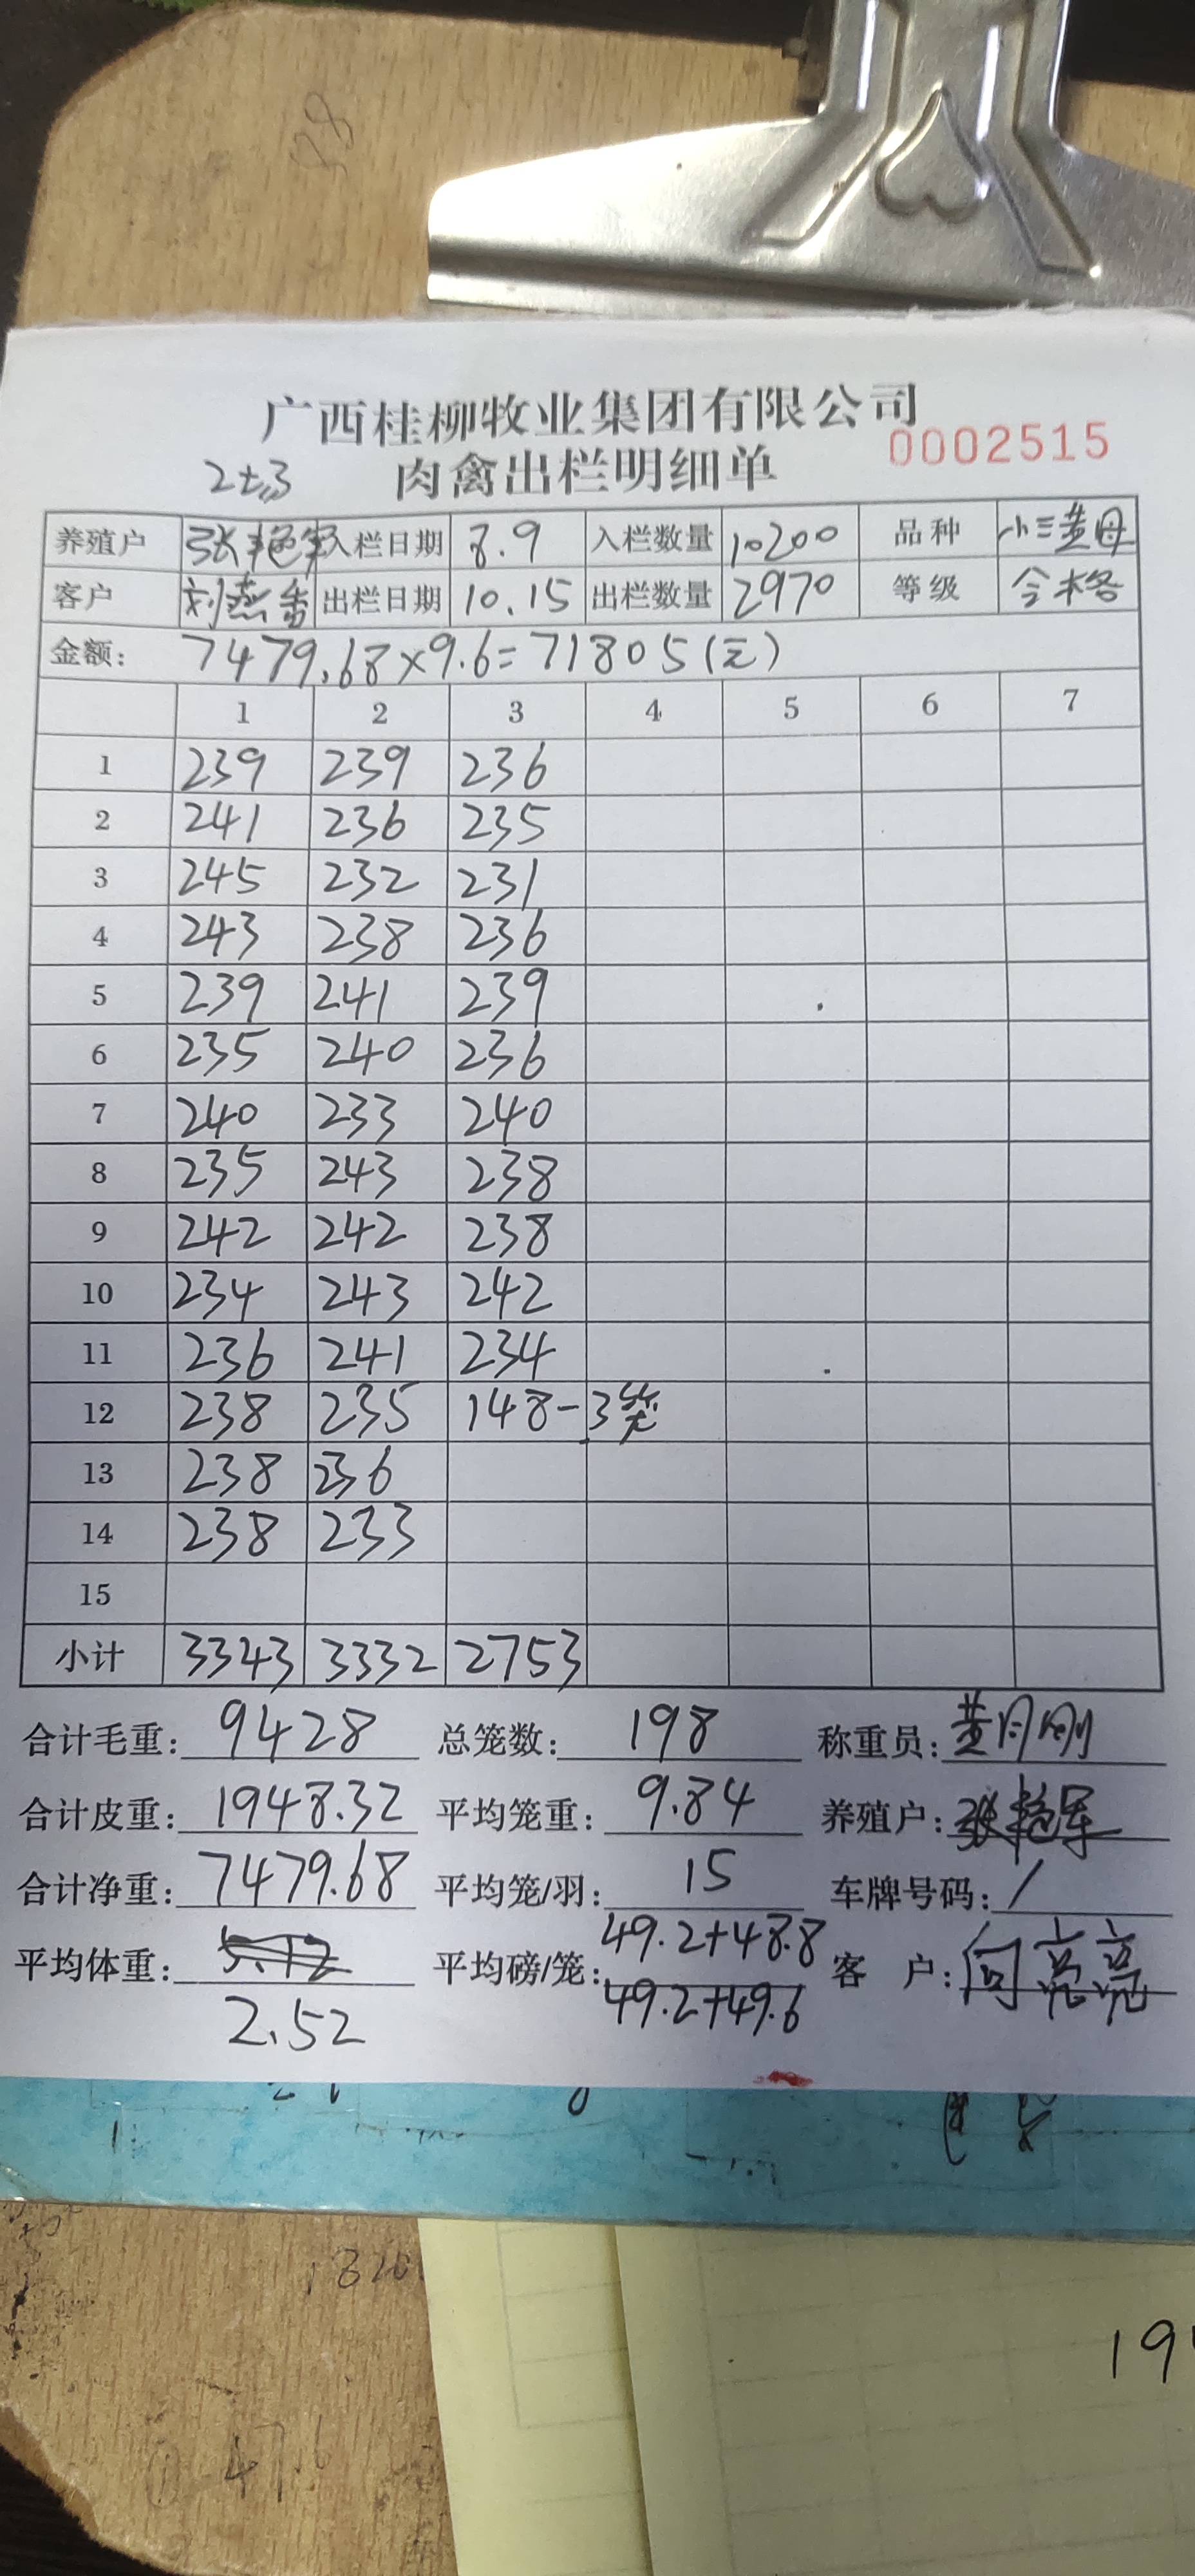 广西桂柳牧业集团有限公司
0002515
肉禽出栏明细单
养殖户 张艳军 入栏日期 8.9 入栏数量 10200 品种 小三黄母
客户 刘燕香 出栏日期 10.15 出栏数量 2970 等级 合格
金额: 7479.68×9.6=71805(元)
1 2 3 4 5 6 7
1 239 239 236
2 241 236 235
3 245 232 231
4 243 238 236
5 239 241 239
6 235 240 236
7 240 233 240
8 235 243 238
9 242 242 238
10 234 243 242
11 236 241 234
12 238 235 148-3笼
13 238 236
14 238 233
15
小计 3343 3332 2753
合计毛重: 9428 总笼数: 198 称重员: 黄月刚
合计皮重: 1948.32 平均笼重: 9.84 养殖户: 张艳军
合计净重: 7479.68 平均笼/羽: 15 车牌号码: /
49.2+48.8
平均体重: 平均磅/笼: 客 户: 向亮亮
49.2+49.6
2.52